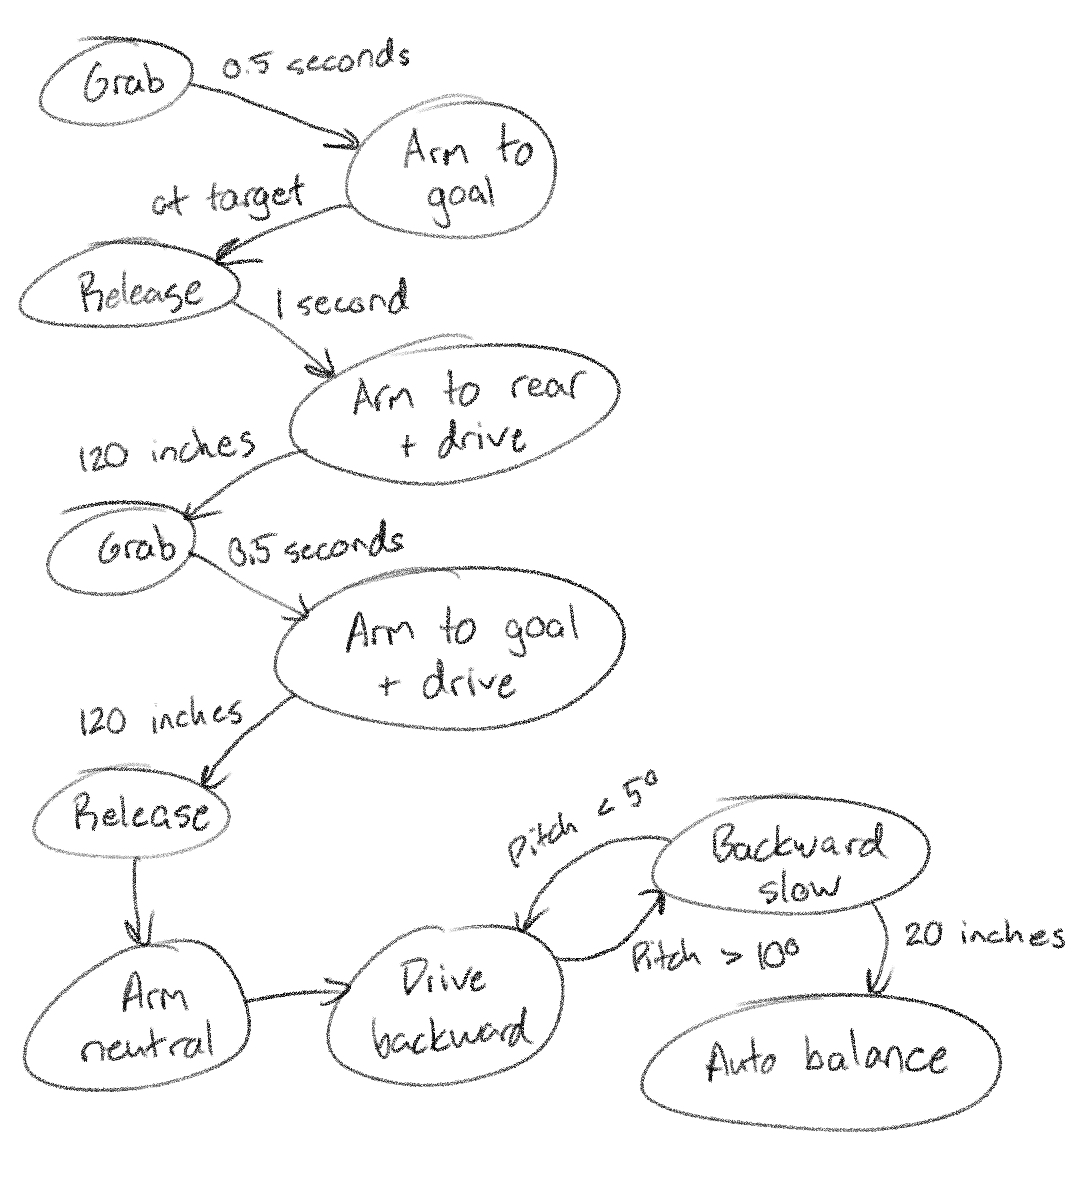 Grab
0.5 seconds
Arm to
goal
at target
Release
1 second
Arm to rear
+ drive
120 inches
Grab
0.5 seconds
Arm to goal
+ drive
120 inches
Release
Arm
neutral
Drive
backward
Pitch < 5°
Backward
slow
Pitch > 10°
20 inches
Auto balance